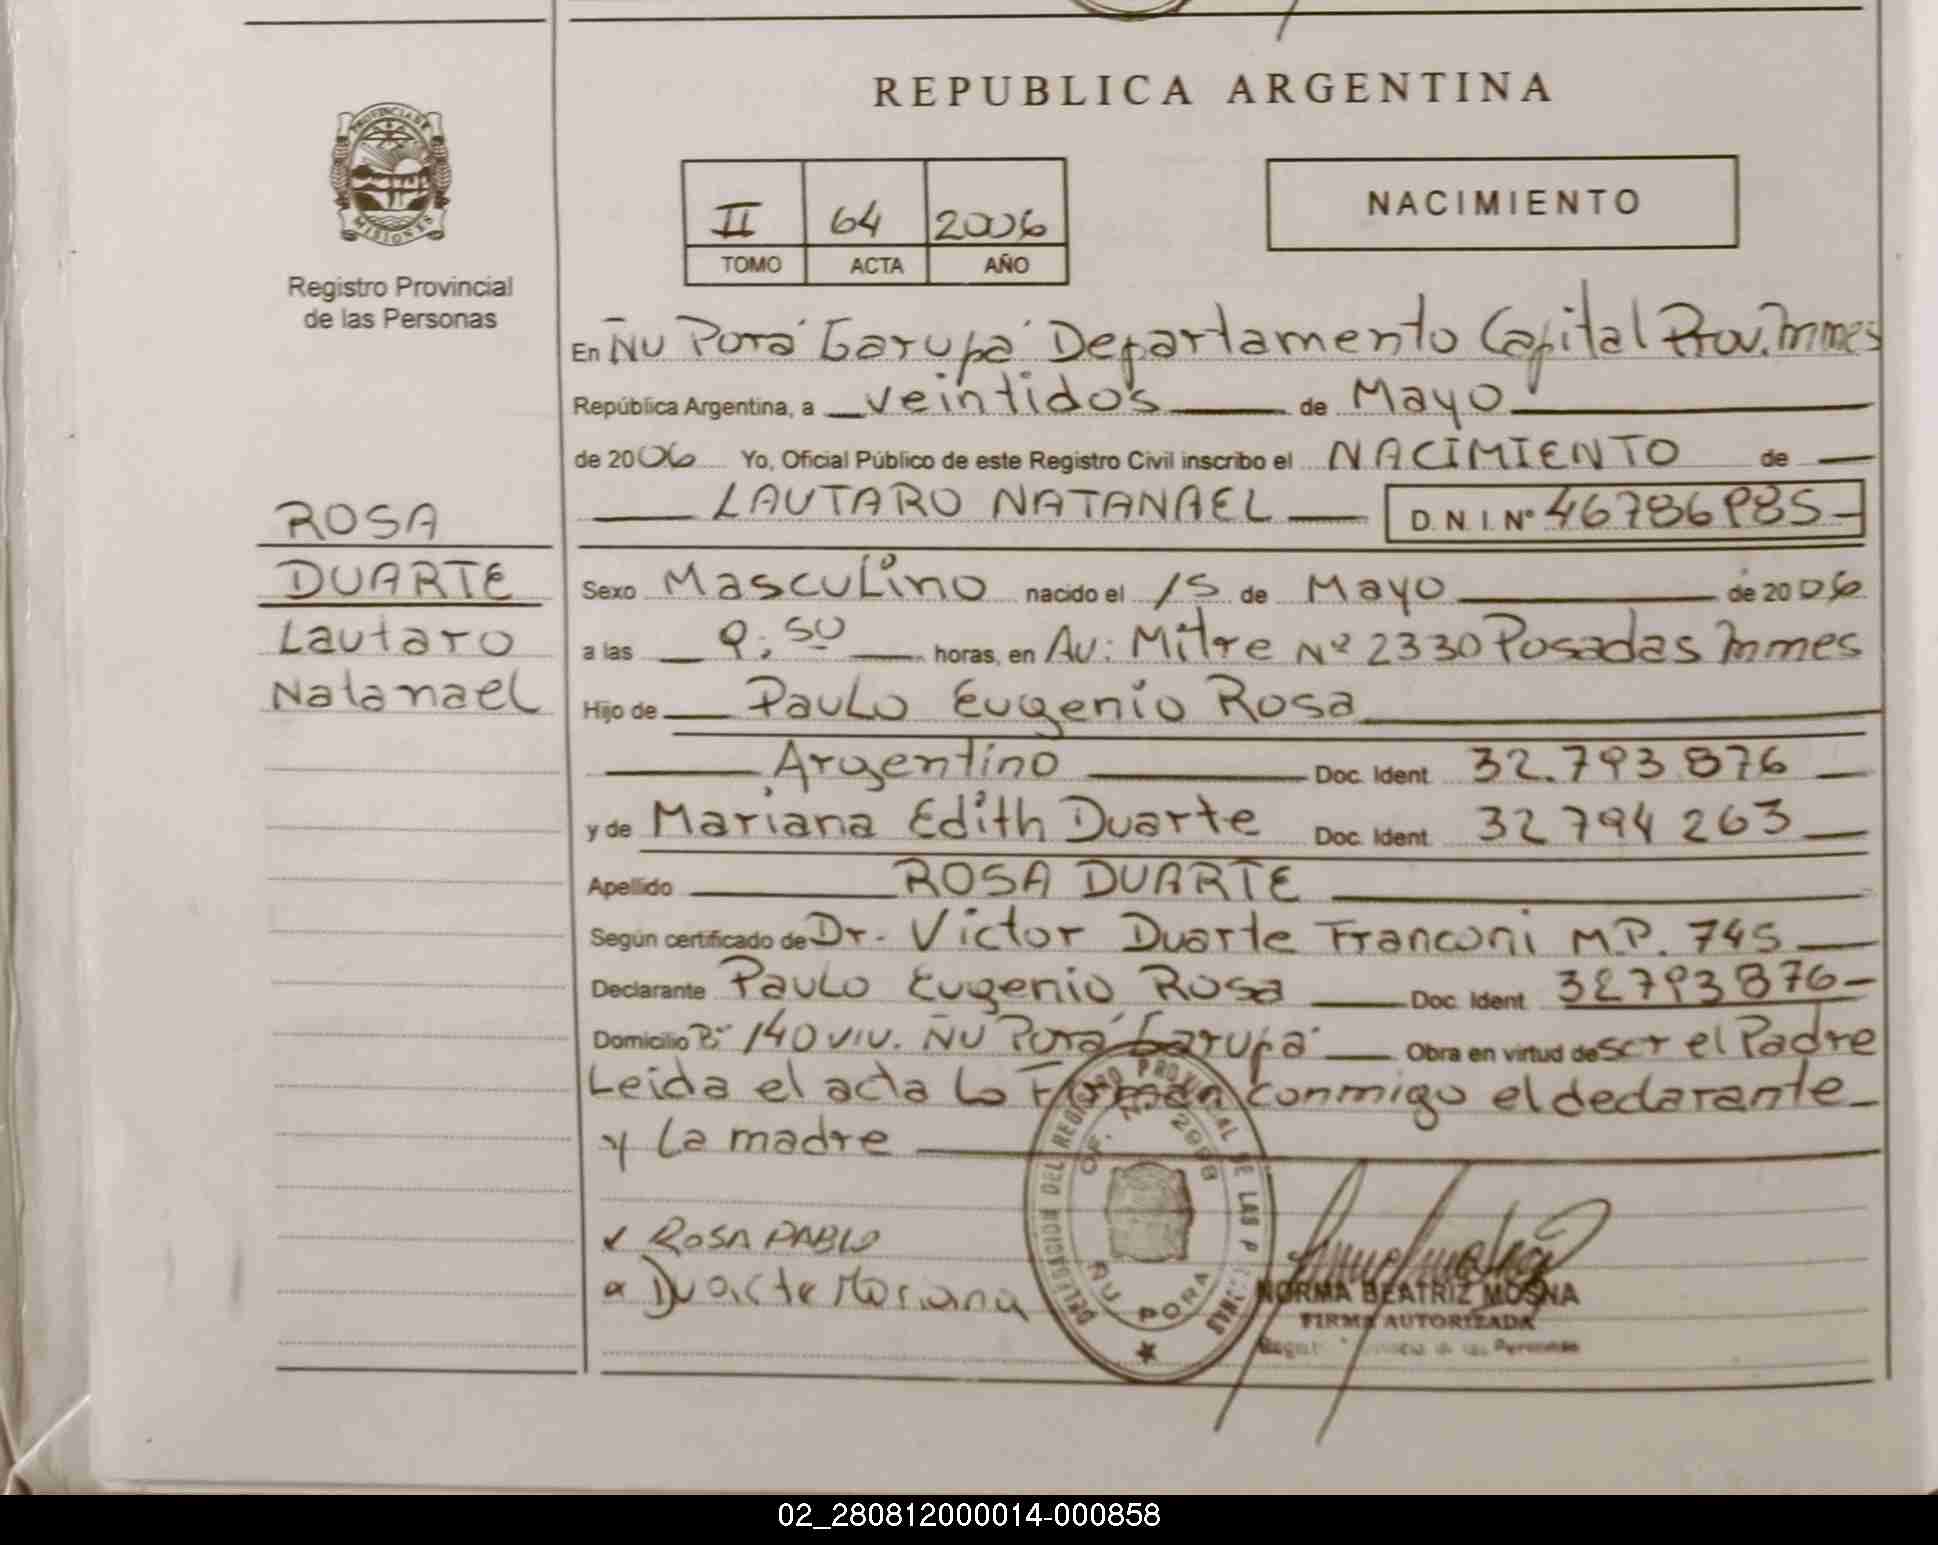 REPUBLICA ARGENTINA
PROVINCIA DE
MISIONES
Registro Provincial
de las Personas
II 64 2006
TOMO ACTA AÑO
NACIMIENTO
En Ñu Porá Garupá Departamento Capital Prov. Mnes
República Argentina, a veintidós de Mayo
de 2006 Yo, Oficial Público de este Registro Civil inscribo el NACIMIENTO de
LAUTARO NATANAEL D.N.I.Nº 46786985
ROSA
DUARTE
Lautaro
Natanael
Sexo Masculino nacido el 15 de Mayo de 2006
a las 9:50 horas, en Av: Mitre Nº 2330 Posadas Mnes
Hijo de Paulo Eugenio Rosa
Argentino Doc. Ident. 32.793.876
y de Mariana Edith Duarte Doc. Ident. 32794263
Apellido ROSA DUARTE
Según certificado de Dr. Victor Duarte Franconi M.P. 745
Declarante Paulo Eugenio Rosa Doc. Ident. 32793876
Domicilio Bº 140 viv. Ñu Porá Garupá Obra en virtud de ser el Padre
Leida el acta la Firman conmigo el declarante
y la madre
ROSA PABLO
Duarte Mariana
DELEGACION DEL REGISTRO PROVINCIAL DE LAS PERSONAS
OF. 2998
ÑU PORA
NORMA BEATRIZ MOSNA
FIRMA AUTORIZADA
02_280812000014-000858